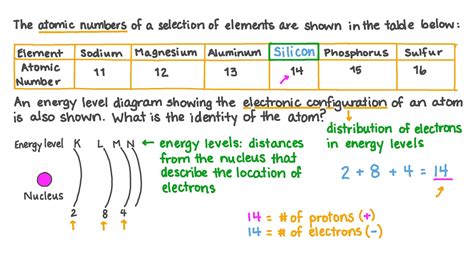 The atomic numbers of a selection of elements are shown in the table below:
Element Sodium Magnesium Aluminum Silicon Phosphorus Sulfur
Atomic Number 11 12 13 14 15 16
An energy level diagram showing the electronic configuration of an atom
is also shown. What is the identity of the atom?
distribution of electrons
in energy levels
Energy level K L M N
← energy levels: distances
from the nucleus that
describe the location of
electrons
2 + 8 + 4 = 14
Nucleus
2 8 4
14 = # of protons (+)
14 = # of electrons (-)